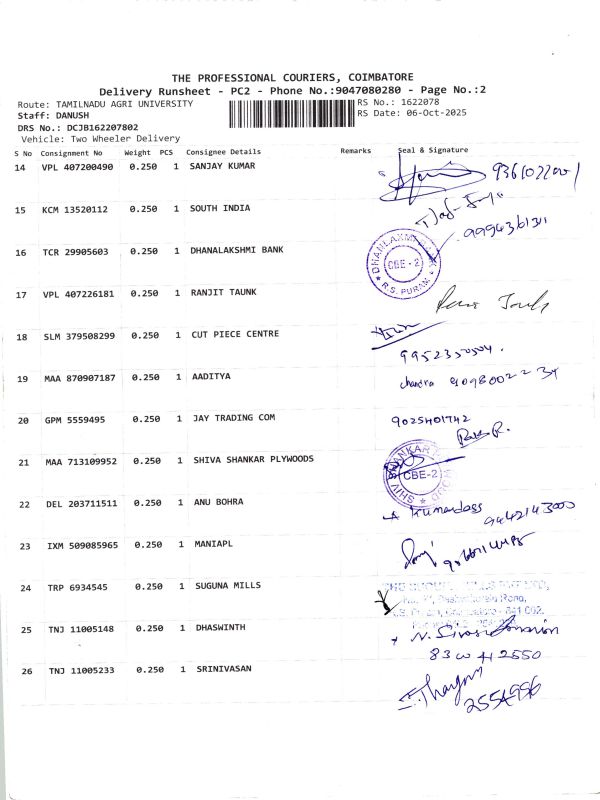 THE PROFESSIONAL COURIERS, COIMBATORE
Delivery Runsheet - PC2 - Phone No.:9047080280 - Page No.:2
Route: TAMILNADU AGRI UNIVERSITY RS No.: 1622078
Staff: DANUSH RS Date: 06-Oct-2025
DRS No.: DCJB162207802
Vehicle: Two Wheeler Delivery
S No Consignment No Weight PCS Consignee Details Remarks Seal & Signature
14 VPL 407200490 0.250 1 SANJAY KUMAR
15 KCM 13520112 0.250 1 SOUTH INDIA
16 TCR 29905603 0.250 1 DHANALAKSHMI BANK
DHANLAXMI BANK
CBE - 2
R.S. PURAM
17 VPL 407226181 0.250 1 RANJIT TAUNK
18 SLM 379508299 0.250 1 CUT PIECE CENTRE
9952350504.
19 MAA 870907187 0.250 1 AADITYA
chandra
20 GPM 5559495 0.250 1 JAY TRADING COM
9025401742
21 MAA 713109952 0.250 1 SHIVA SHANKAR PLYWOODS
CBE-2
22 DEL 203711511 0.250 1 ANU BOHRA
Kumardass
9442143000
23 IXM 509085965 0.250 1 MANIAPL
24 TRP 6934545 0.250 1 SUGUNA MILLS
25 TNJ 11005148 0.250 1 DHASWINTH
26 TNJ 11005233 0.250 1 SRINIVASAN